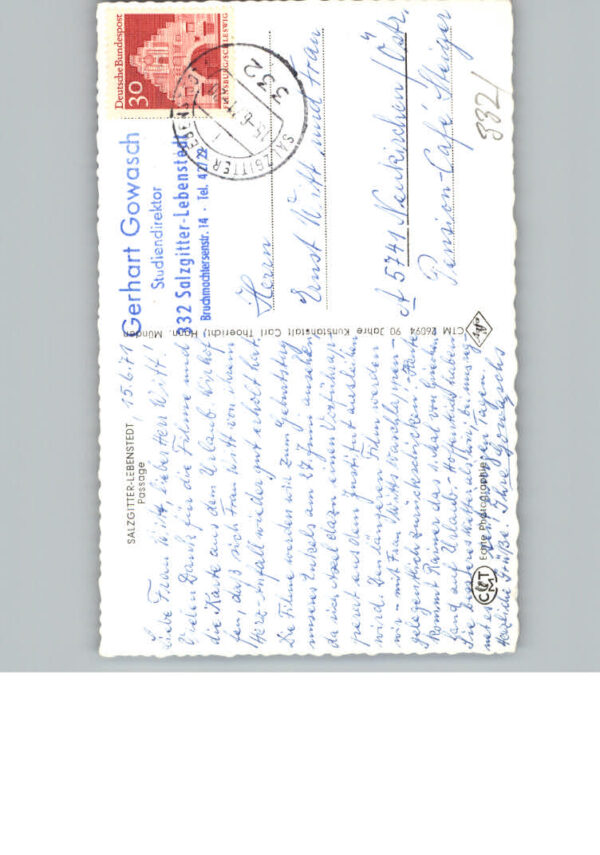 SALZGITTER-LEBENSTEDT
Passage
15.6.71
Liebe Frau Witt, lieber Herr Witt!
Vielen Dank für die Filme und
die Karte aus dem Urlaub. Wir hof-
fen, daß sich Frau Witt von ihrem
Herz-Anfall wieder gut erholt hat.
Die Filme werden wir zum Geburtstag
unseres Enkels am 17. Juni ansehen,
da sein Vati dazu einen Vorführap-
parat aus dem Institut ausleihen
wird. Den längeren Film werden
wir - mit Frau Witts Waschlappen -
gelegentlich zurückschicken. - Heute
kommt Rainer
land auf Urlaub. - Hoffentlich haben
Sie besseres Wetter als wir bei uns
Tagen.
Herzliche Grüße! Ihre Gowaschs
Echte Photographie
CTM 26094 90 Jahre Kunstanstalt Carl Thoericht, Hann. Münden
Gerhart Gowasch
Studiendirektor
332 Salzgitter-Lebenstedt
Bruchmachtersenstr. 14 · Tel. 42729
Deutsche Bundespost
30
FLENSBURG/SCHLESWIG
SALZGITTER-LEBENSTEDT 1
332
Herrn
Ernst Witt und Frau
A 5741 Neukirchen/Östr.
Pension-Café Steiger
332/